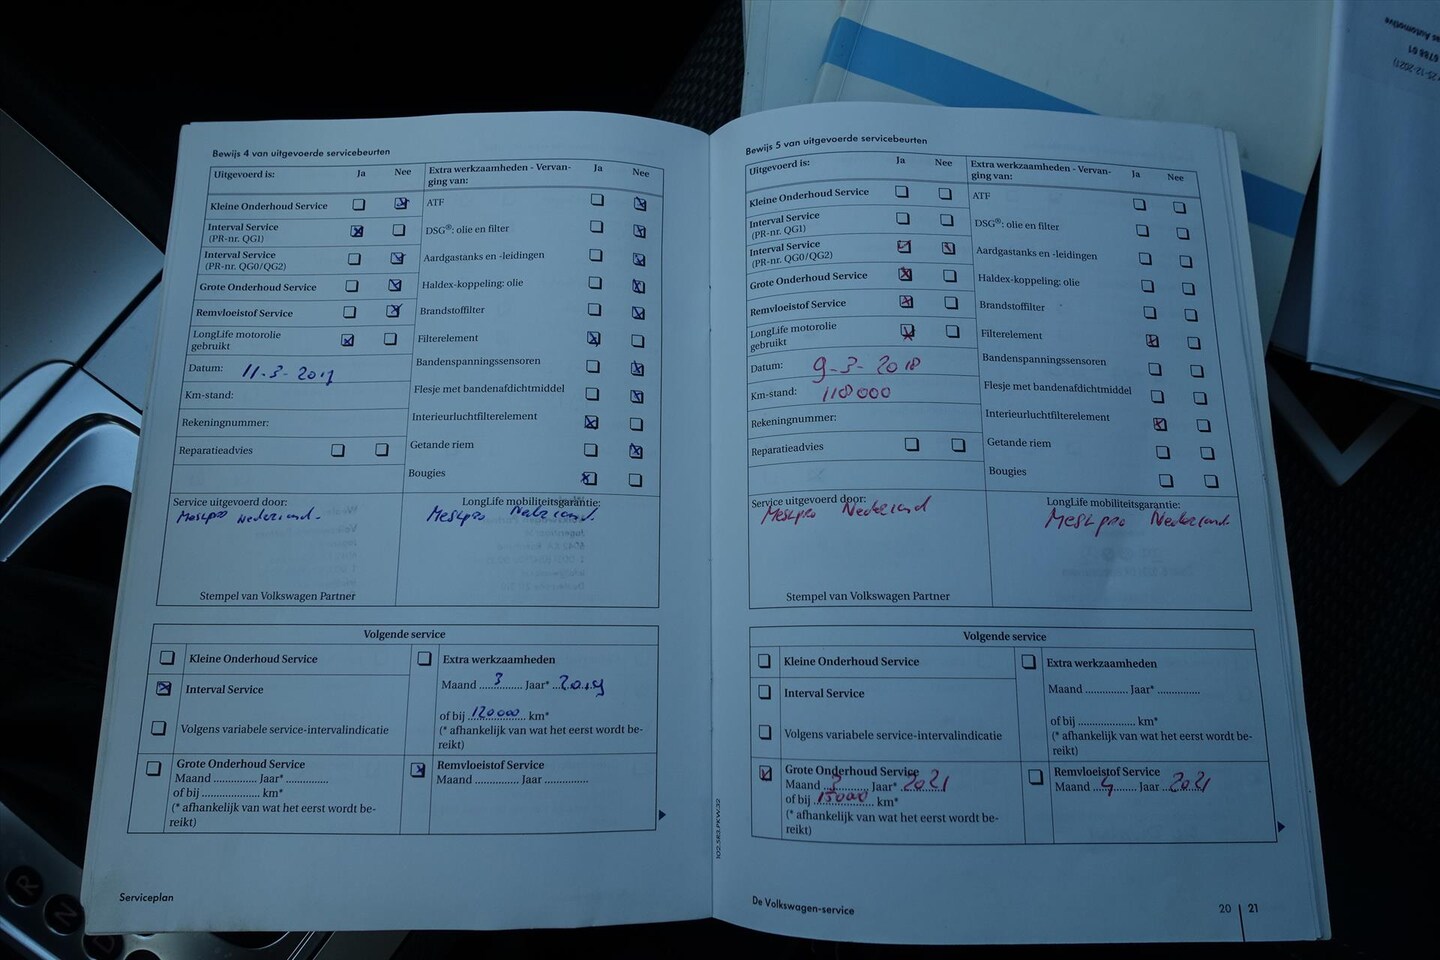 Bewijs 4 van uitgevoerde servicebeurten
Uitgevoerd is: Ja Nee
Kleine Onderhoud Service
Interval Service
(PR-nr. QG1)
Interval Service
(PR-nr. QG0/QG2)
Grote Onderhoud Service
Remvloeistof Service
LongLife motorolie
gebruikt
Datum: 11-3-201
Km-stand:
Rekeningnummer:
Reparatieadvies
Extra werkzaamheden - Vervan-
ging van: Ja Nee
ATF
DSG®: olie en filter
Aardgastanks en -leidingen
Haldex-koppeling: olie
Brandstoffilter
Filterelement
Bandenspanningssensoren
Flesje met bandenafdichtmiddel
Interieurluchtfilterelement
Getande riem
Bougies
Service uitgevoerd door:
Nederland
Stempel van Volkswagen Partner
LongLife mobiliteitsgarantie:
Volgende service
Kleine Onderhoud Service
Interval Service
Volgens variabele service-intervalindicatie
Grote Onderhoud Service
Maand .............. Jaar* ..............
of bij .................... km*
(* afhankelijk van wat het eerst wordt be-
reikt)
Extra werkzaamheden
Maand 3 Jaar* 2019
of bij 120000 km*
(* afhankelijk van wat het eerst wordt be-
reikt)
Remvloeistof Service
Maand .............. Jaar ..............
Serviceplan
Bewijs 5 van uitgevoerde servicebeurten
Uitgevoerd is: Ja Nee
Kleine Onderhoud Service
Interval Service
(PR-nr. QG1)
Interval Service
(PR-nr. QG0/QG2)
Grote Onderhoud Service
Remvloeistof Service
LongLife motorolie
gebruikt
Datum: 9-3-2018
Km-stand: 118000
Rekeningnummer:
Reparatieadvies
Extra werkzaamheden - Vervan-
ging van: Ja Nee
ATF
DSG®: olie en filter
Aardgastanks en -leidingen
Haldex-koppeling: olie
Brandstoffilter
Filterelement
Bandenspanningssensoren
Flesje met bandenafdichtmiddel
Interieurluchtfilterelement
Getande riem
Bougies
Service uitgevoerd door:
Nederland
Stempel van Volkswagen Partner
LongLife mobiliteitsgarantie:
Nederland
Volgende service
Kleine Onderhoud Service
Interval Service
Volgens variabele service-intervalindicatie
Grote Onderhoud Service
Maand 3 Jaar* 2021
of bij 15000 km*
(* afhankelijk van wat het eerst wordt be-
reikt)
Extra werkzaamheden
Maand .............. Jaar* ..............
of bij .................... km*
(* afhankelijk van wat het eerst wordt be-
reikt)
Remvloeistof Service
Maand 4 Jaar 2021
De Volkswagen-service
20 | 21
R
N
D